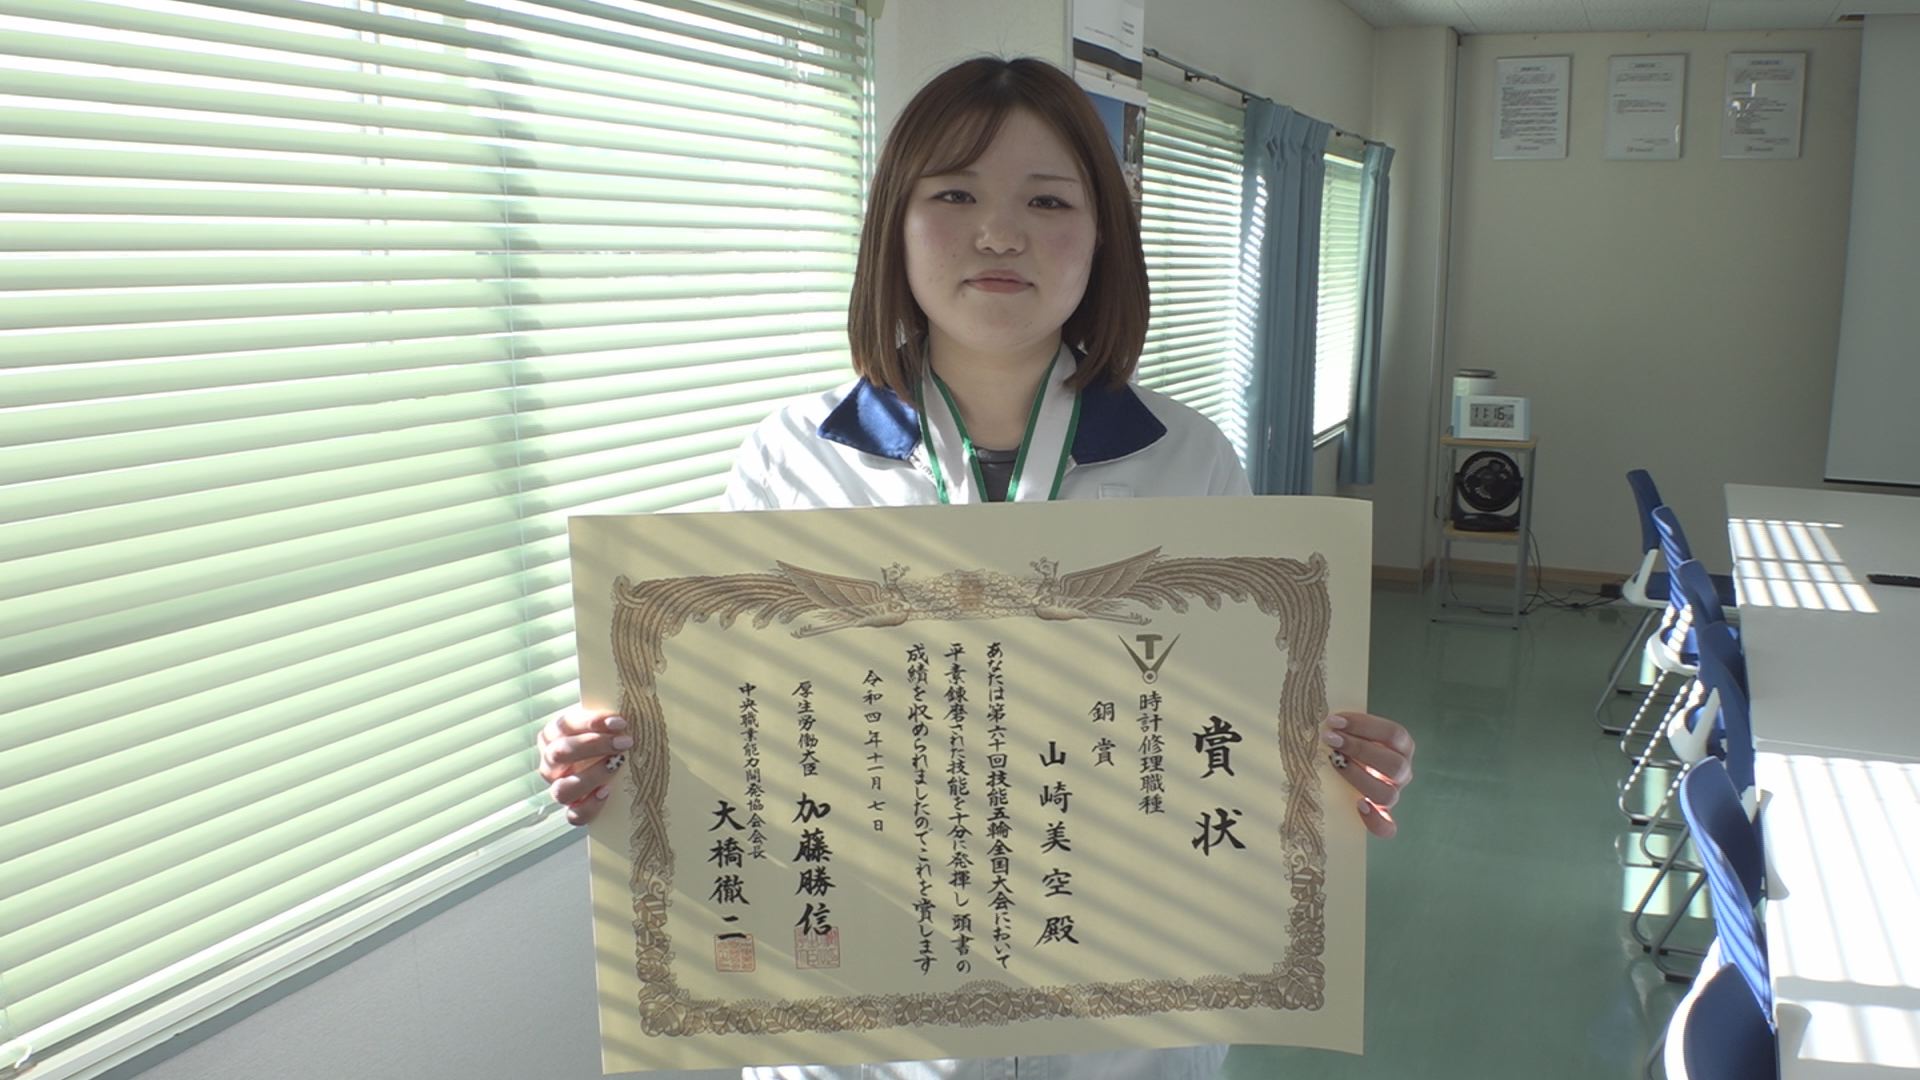 賞状
時計修理職種
銅賞
山崎美空殿
あなたは第六十回技能五輪全国大会において
平素錬磨された技能を十分に発揮し頭書の
成績を収められましたのでこれを賞します
令和四年十一月七日
厚生労働大臣 加藤勝信
中央職業能力開発協会会長 大橋徹二
11:16